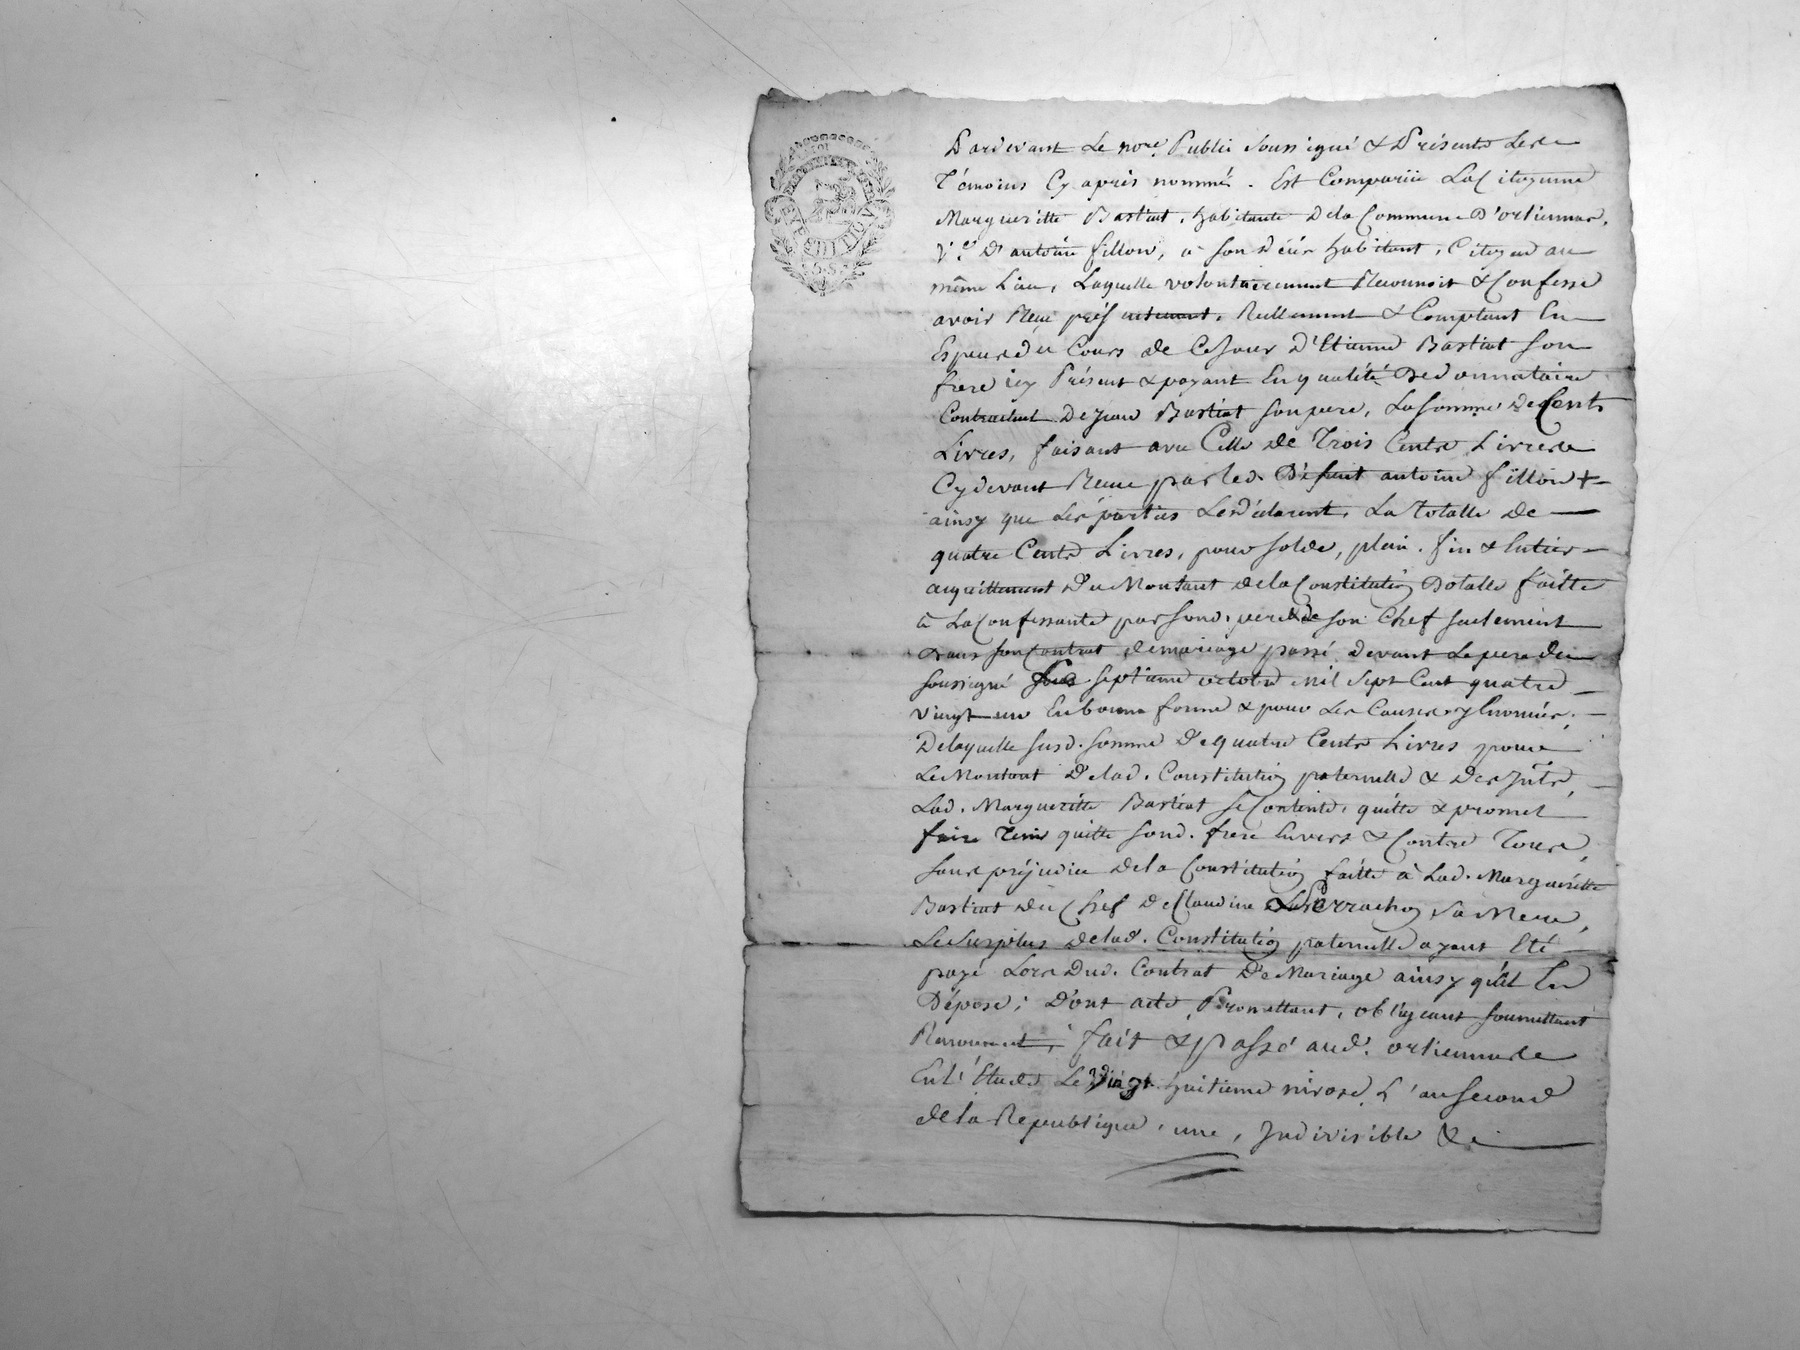 Pardevant Le no.re Public soussigné & Présents Les
Témoins Cy après nommés. Est Comparüe La Citoyenne
Margueritte Bastiat, habitante dela Commune D'orliennas,
V.e D'antoine fillon, a son décès habitant, Citoyen au
même Lieu, Laquelle volontairement Reconnoit & Confesse
avoir Reçu présentement, Réellement & Comptant En
Espece du Cours de Ce jour D'Etienne Bastiat son
frere icy Présent & payant En qualité De donnataire
Contractuel De jean Bastiat son pere, La somme de Cent
Livres, faisant avec Celle de Trois Cents Livres
Cy devant Recue par led. Défunt antoine fillon +
ainsy que Les parties Le déclarent, La Totalle de
quatre Cents Livres, pour solde, plein, fin & Entier
acquittement Du Montant dela Constitution Dotalle faitte
à La Confessante par sond. pere & de son Chef seulement
dans son Contrat de mariage passé devant Le pere du
soussigné Le septieme octobre mil sept Cent quatre
vingt un En bonne forme & pour Les Causes y Enoncées,
De laquelle susd. somme De quatre Cents Livres pour
Le Montant De lad. Constitution paternelle & Des jnts,
Lad. Margueritte Bastiat se Contente, quitte & promet
faire Tenir quitte sond. frere Envers & Contre Tous,
sans préjudice dela Constitution faitte à Lad. Margueritte
Bastiat du Chef De Claudine Perrachon sa Mere,
Le surplus de lad. Constitution paternelle ayant Eté
payé Lors Dud. Contrat De Mariage ainsy qu'il En
Dépose; Dont acte, Promettant, obligeant soumettant
Renonceant, fait & passé aud. orliennas
En l'Etude Le vingt huitieme nivose L'an second
de la Republique, une, Indivisible &